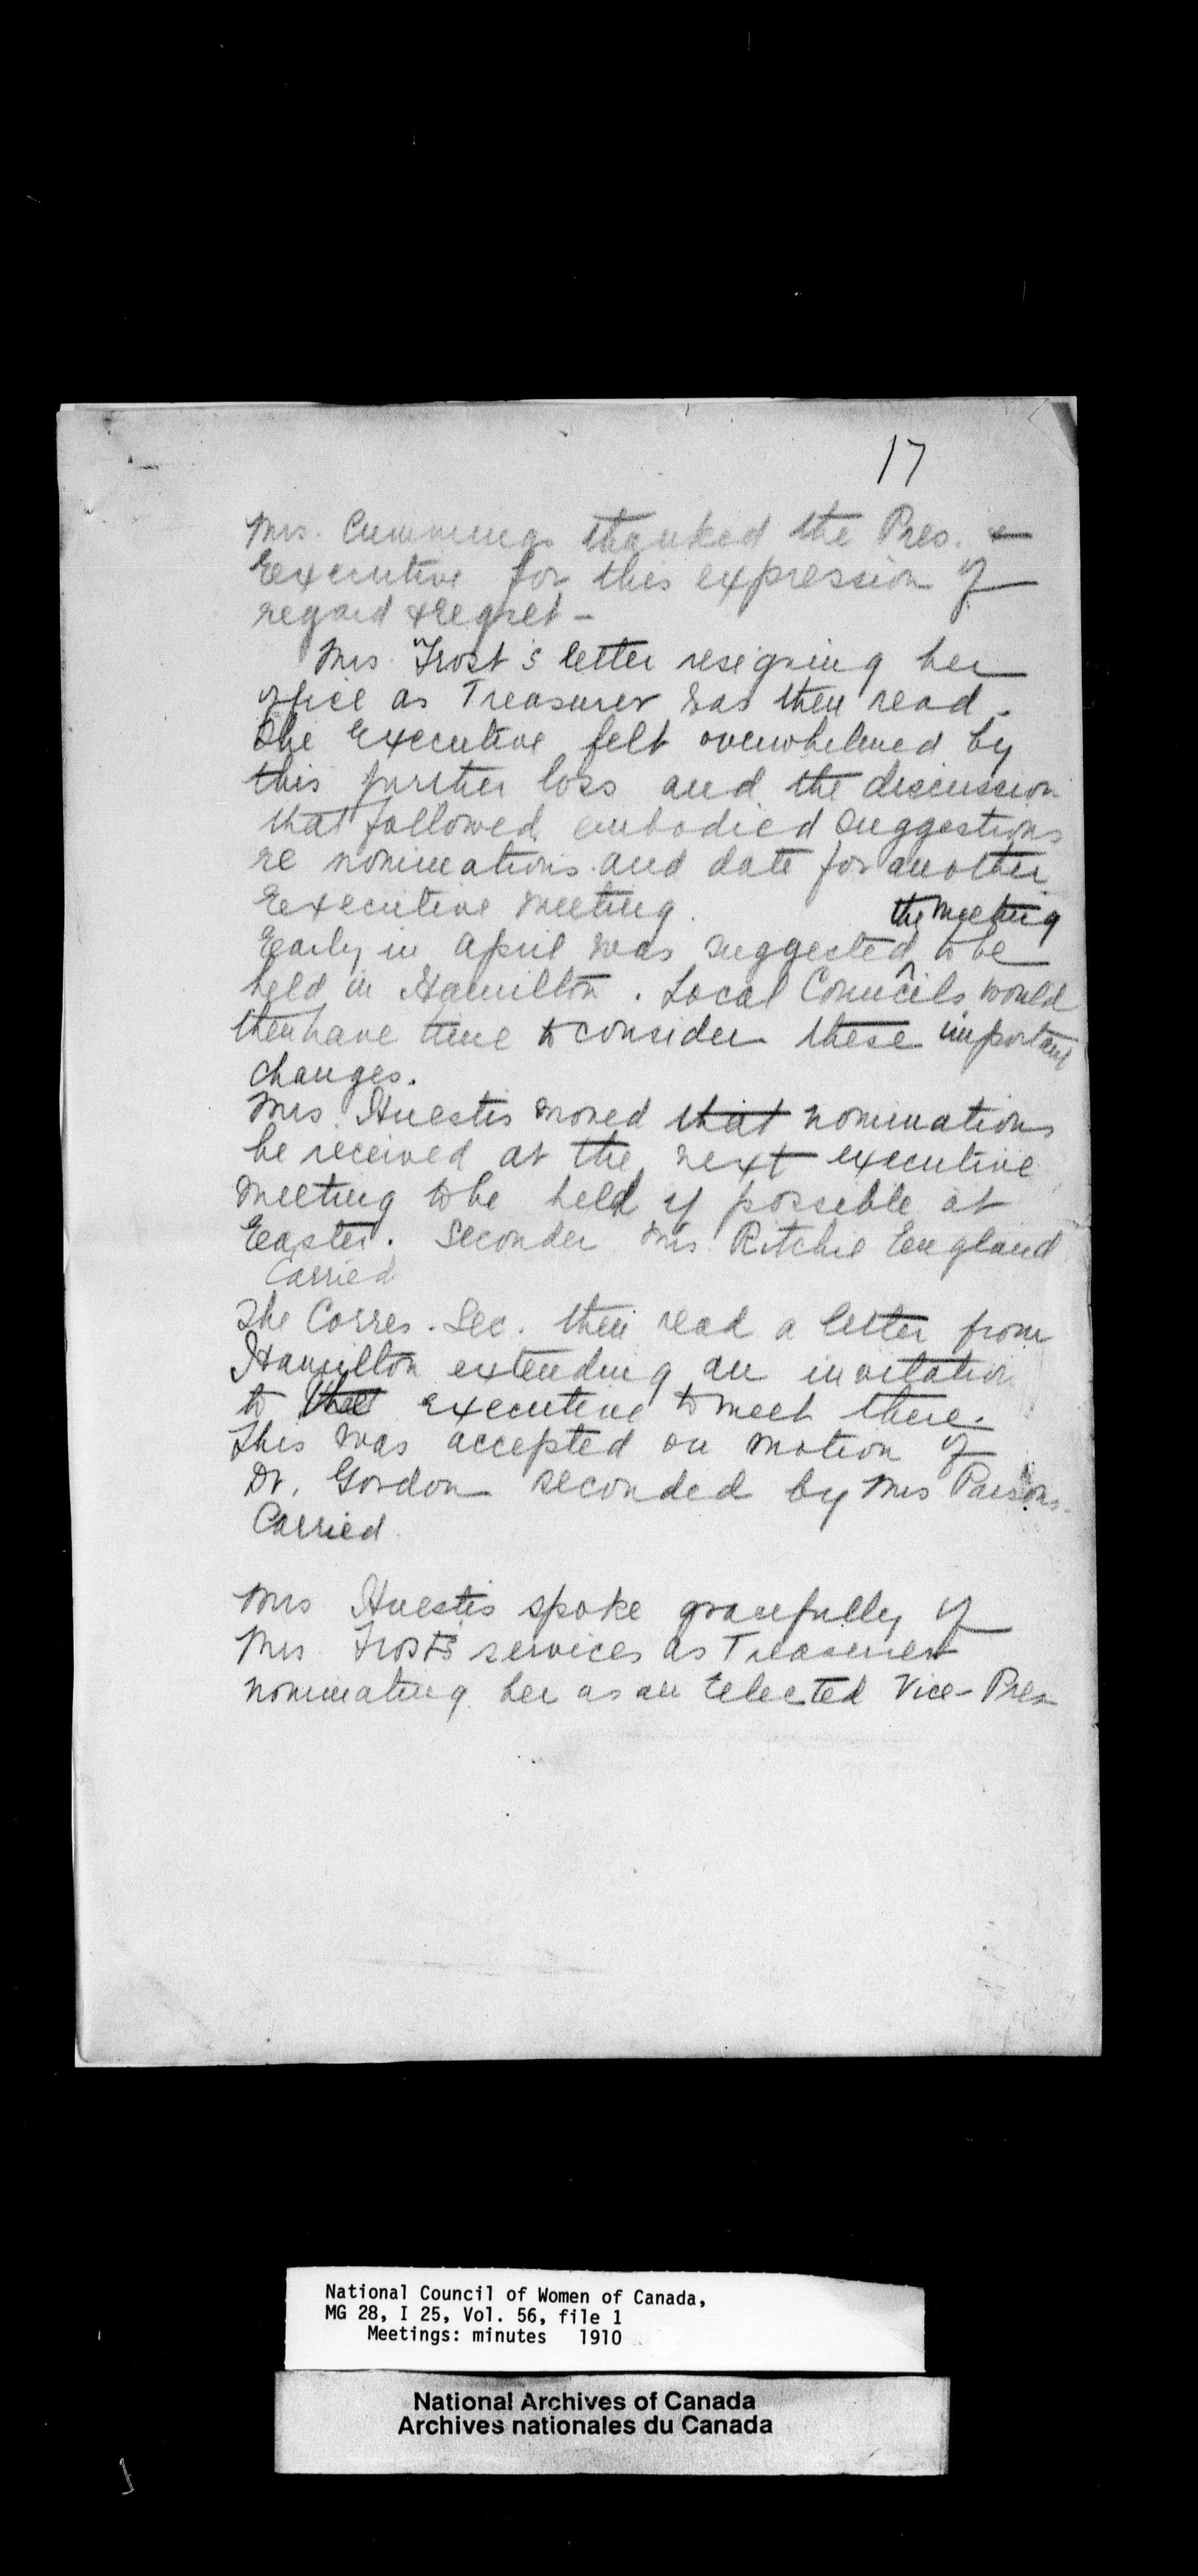 17
Mrs. Cummings thanked the Pres. &
Executive for this expression of
regard & regret -
Mrs. Frost's letter resigning her
office as Treasurer was then read.
The Executive felt overwhelmed by
this further loss and the discussion
that followed embodied suggestions
re nominations and date for another
Executive meeting.
the meeting
Early in April was suggested ^ to be
held in Hamilton. Local Councils would
then have time to consider these important
changes.
Mrs. Huestis moved that nominations
be received at the next executive
meeting to be held if possible at
Easter. Seconder Mrs. Ritchie England
Carried
The Corres. Sec. then read a letter from
Hamilton extending an invitation
to the executive to meet there.
This was accepted on motion of
Dr. Gordon seconded by Mrs Parsons.
Carried.
Mrs Huestis spoke gracefully of
Mrs. Frost's services as Treasurer
nominating her as an Elected Vice-Pres
National Council of Women of Canada,
MG 28, I 25, Vol. 56, file 1
Meetings: minutes 1910
National Archives of Canada
Archives nationales du Canada